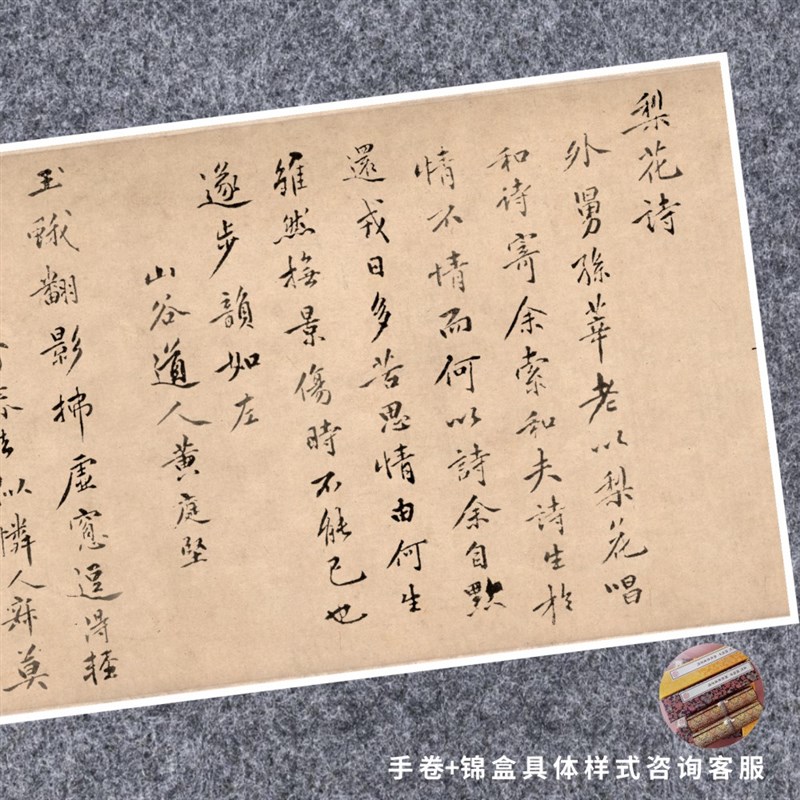 梨花詩
外舅孫莘老以梨花唱
和詩寄余索和夫詩生於
情不情而何以詩余自黜
還戎日多苦思情由何生
雖然撫景傷時不能已也
遂步韻如左
山谷道人黃庭堅
玉蛾翻影拂虛窓逗得
似憐人寂莫
手卷+锦盒具体样式咨询客服